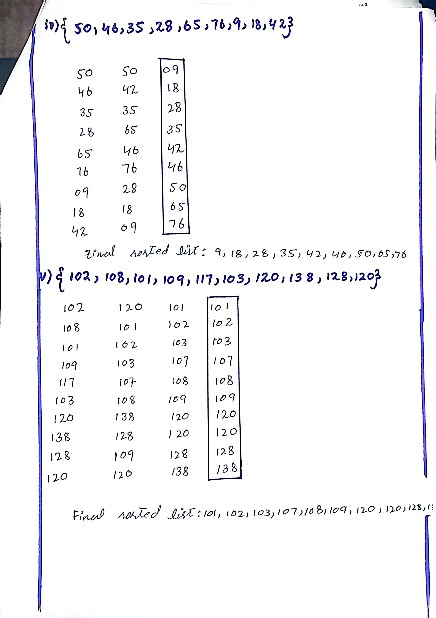 iv) { 50, 46, 35, 28, 65, 76, 9, 18, 42}
50 50 09
46 42 18
35 35 28
28 65 35
65 46 42
76 76 46
09 28 50
18 18 65
42 09 76
Final sorted list: 9, 18, 28, 35, 42, 46, 50, 65, 76
v) { 102, 108, 101, 109, 117, 103, 120, 138, 128, 120}
102 120 101 101
108 101 102 102
101 102 103 103
109 103 107 107
117 107 108 108
103 108 109 109
120 138 120 120
138 128 120 120
128 109 128 128
120 120 138 138
Final sorted list: 101, 102, 103, 107, 108, 109, 120, 120, 128,